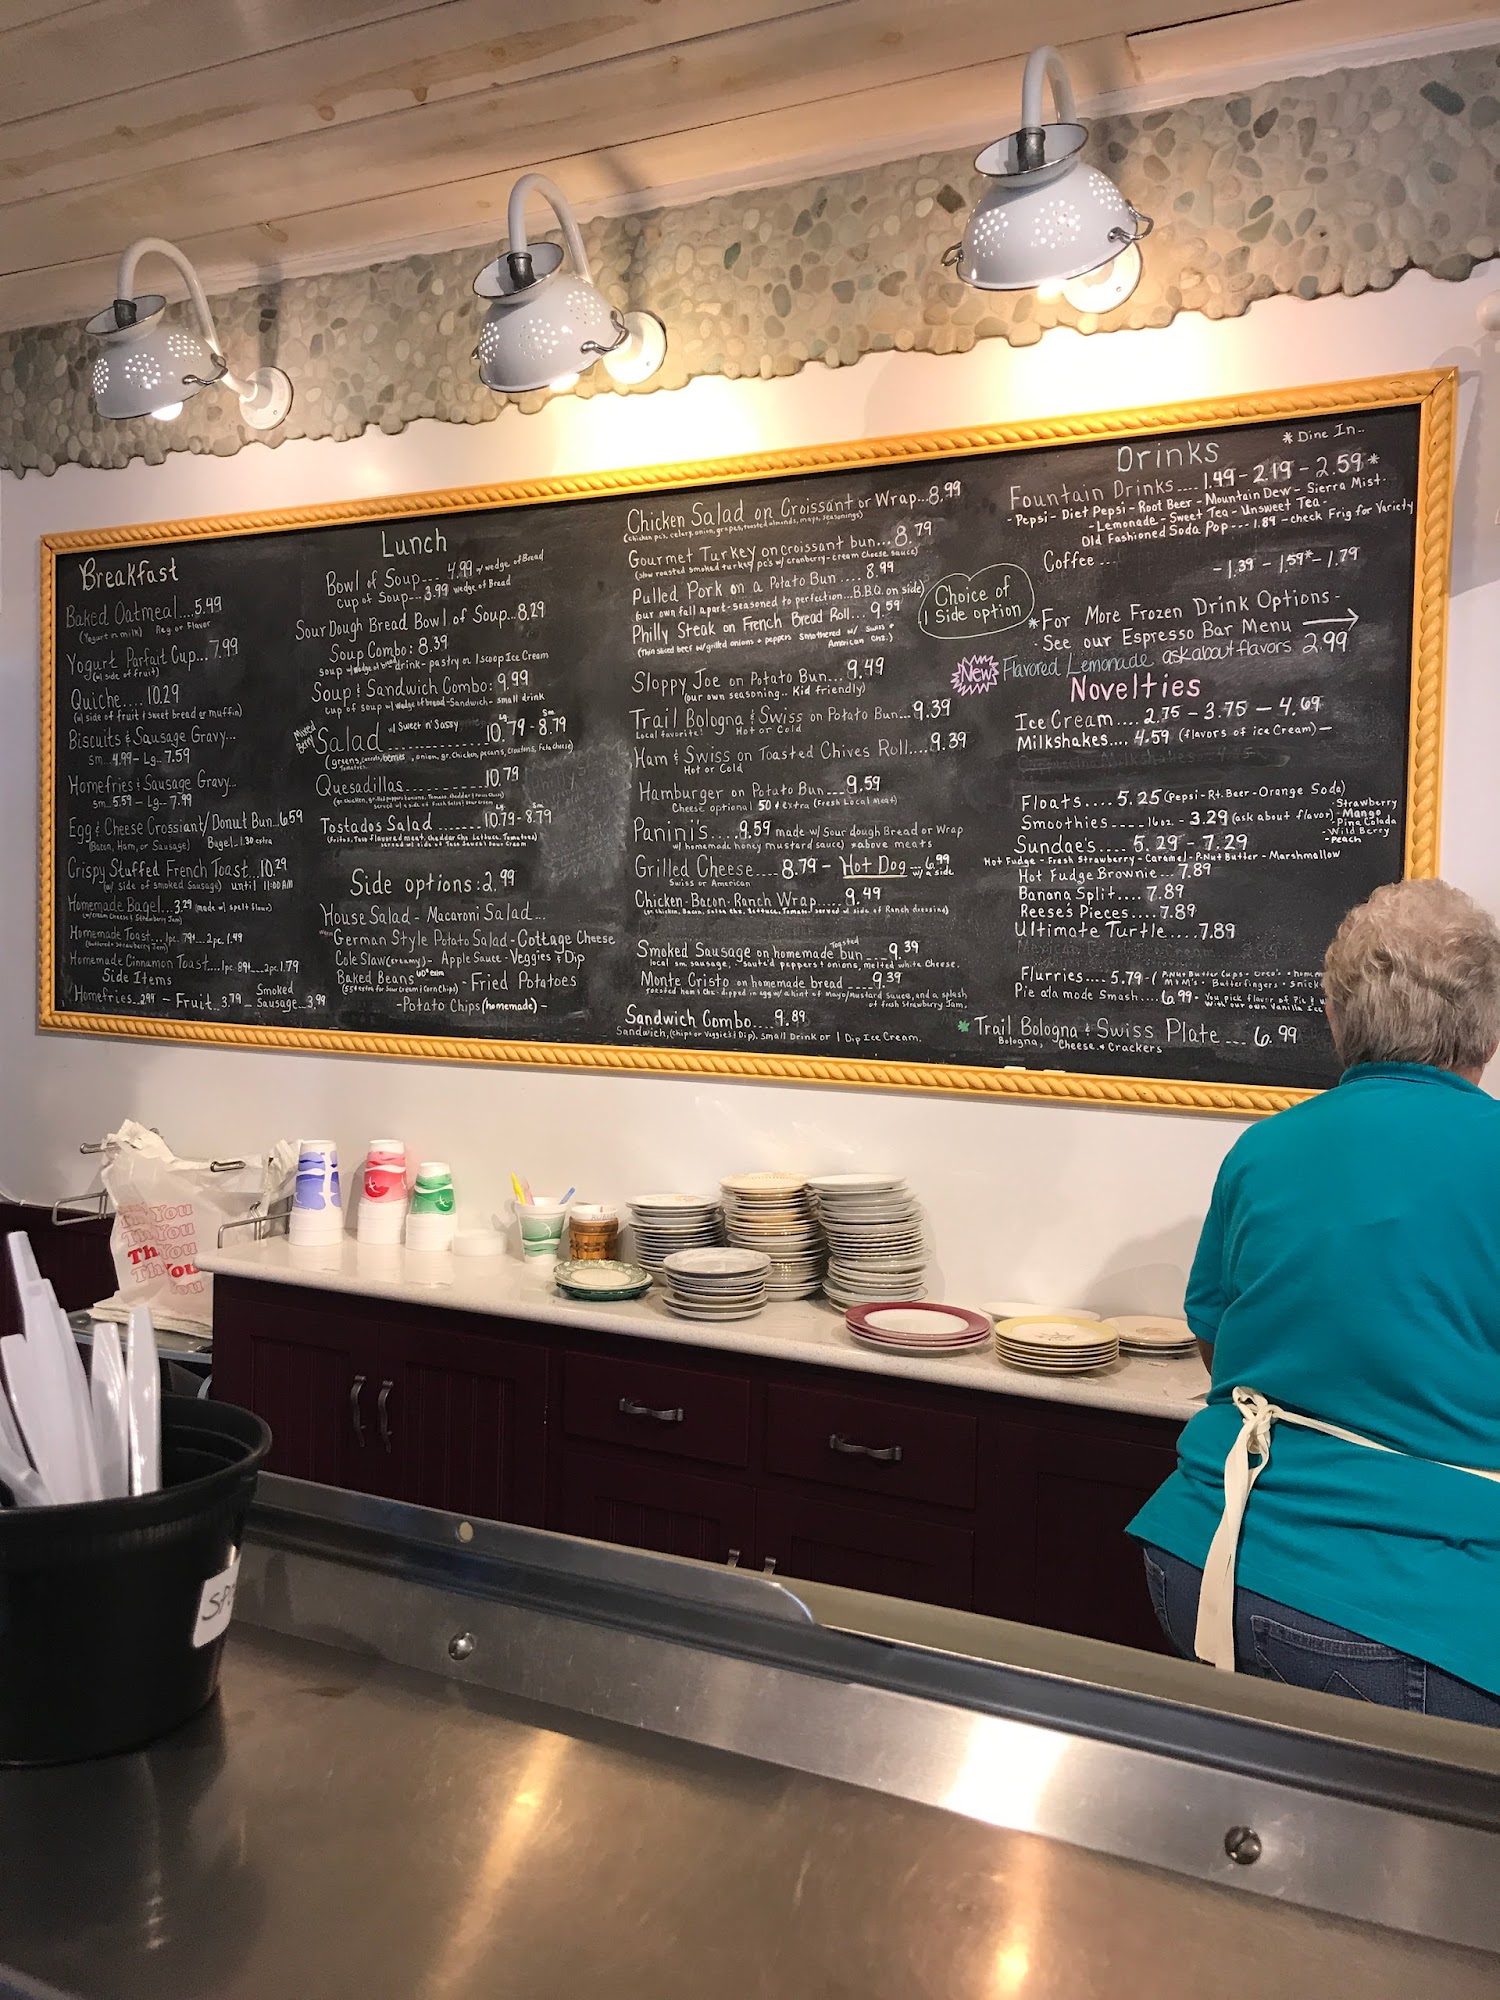 Breakfast
Baked Oatmeal....5.49
(Yogurt or milk) Reg or Flavor
Yogurt Parfait Cup...7.99
(w/ side of fruit)
Quiche.....10.29
(w/ side of fruit & sweet bread or muffin)
Biscuits & Sausage Gravy...
sm...4.99- Lg...7.59
Homefries & Sausage Gravy...
sm...5.59 - Lg...7.99
Egg & Cheese Crossiant/Donut Bun...6.59
(Bacon, Ham, or Sausage) Bagel...1.30 extra
Crispy Stuffed French Toast...10.29
(w/ side of smoked Sausage) until 11:00 AM
Homemade Bagel....3.29 (made w/ spelt flour)
(w/cream cheese & Strawberry Jam)
Homemade Toast....1pc. 79¢...2pc. 1.49
(buttered + Strawberry Jam)
Homemade Cinnamon Toast....1pc. 89¢...2pc. 1.79
Side Items
Homefries..2.99 - Fruit..3.79 - Smoked Sausage...3.99
Lunch
Bowl of Soup.... 4.99 w/ wedge of Bread
Cup of Soup... 3.99 wedge of Bread
Sour Dough Bread Bowl of Soup...8.29
Soup Combo: 8.39
soup w/ wedge of bread drink- pastry or 1 scoop Ice Cream
Soup & Sandwich Combo: 9.99
cup of soup w/ wedge of bread - Sandwich - small drink
Mixed Berry
Salad w/ Sweet n' Sassy Lg 10.79 - Sm 8.79
Quesadillas 10.79
Tostados Salad Lg 10.79 - Sm 8.79
Side options: 2.99
House Salad - Macaroni Salad...
German Style Potato Salad - Cottage Cheese
Cole Slaw (creamy) - Apple Sauce - Veggies & Dip
Baked Beans - Fried Potatoes
-Potato Chips (homemade) -
Chicken Salad on Croissant or Wrap...8.99
(chicken pcs, celery, onion, grapes, toasted almonds, mayo, seasonings)
Gourmet Turkey on croissant bun...8.79
(slow roasted smoked turkey pc's w/ cranberry-cream cheese sauce)
Pulled Pork on a Potato Bun .... 8.99
(our own fall apart-seasoned to perfection...B.B.Q. on side)
Philly Steak on French Bread Roll....9.59
(Thin sliced beef w/ grilled onions + peppers smothered w/ Swiss + American chz.)
Choice of
1 Side option
Sloppy Joe on Potato Bun...9.49
(our own seasoning... Kid friendly)
Trail Bologna & Swiss on Potato Bun...9.39
Local favorite! Hot or Cold
Ham & Swiss on Toasted Chives Roll....9.39
Hot or Cold
Hamburger on Potato Bun...9.59
Cheese optional 50¢ extra (Fresh Local Meat)
Panini's.....9.59 made w/ Sour dough Bread or Wrap
w/ homemade honey mustard sauce) *above meats
Grilled Cheese.... 8.79 - Hot Dog ...6.99 w/ a side
Swiss or American
Chicken-Bacon-Ranch Wrap....9.49
Smoked Sausage on homemade Toasted bun...9.39
local sm sausage, saute'd peppers & onions, melted white cheese.
Monte Cristo on homemade bread....9.39
toasted ham & chz - dipped in egg w/ a hint of mayo/mustard sauce, and a splash
of fresh Strawberry Jam.
Sandwich Combo.... 9.89
Sandwich, (chips or Veggies & Dip), Small Drink or 1 Dip Ice Cream.
Drinks
* Dine In..
Fountain Drinks.... 1.49 - 2.19 - 2.59 *
-Pepsi - Diet Pepsi - Root Beer - Mountain Dew - Sierra Mist-
-Lemonade - Sweet Tea - Unsweet Tea-
Old Fashioned Soda Pop....1.89 -check Frig for Variety
Coffee ... -1.39 - 1.59* - 1.79
*For More Frozen Drink Options-
See our Espresso Bar Menu
New Flavored Lemonade ask about flavors 2.99
Novelties
Ice Cream.... 2.75 - 3.75 - 4.69
Milkshakes.... 4.59 (flavors of ice Cream)
Floats.... 5.25 (Pepsi-Rt. Beer-Orange Soda)
Smoothies.... 16oz. - 3.29 (ask about flavor)
-Strawberry
-Mango
-Pina Colada
-Wild Berry
-Peach
Sundae's.... 5.29 - 7.29
Hot Fudge - Fresh Strawberry - Caramel - P.Nut Butter - Marshmallow
Hot Fudge Brownie...7.89
Banana Split....7.89
Reese's Pieces....7.89
Ultimate Turtle....7.89
Flurries.... 5.79 -( P.Nut Butter Cups - Oreo's -
M+M's - Butterfingers -
Pie a'la mode Smash....6.99 - You pick flavor of Pie &
with our own Vanilla Ice
* Trail Bologna & Swiss Plate ... 6.99
Bologna, Cheese & Crackers
Thank You
Thank You
Thank You
Thank You
You